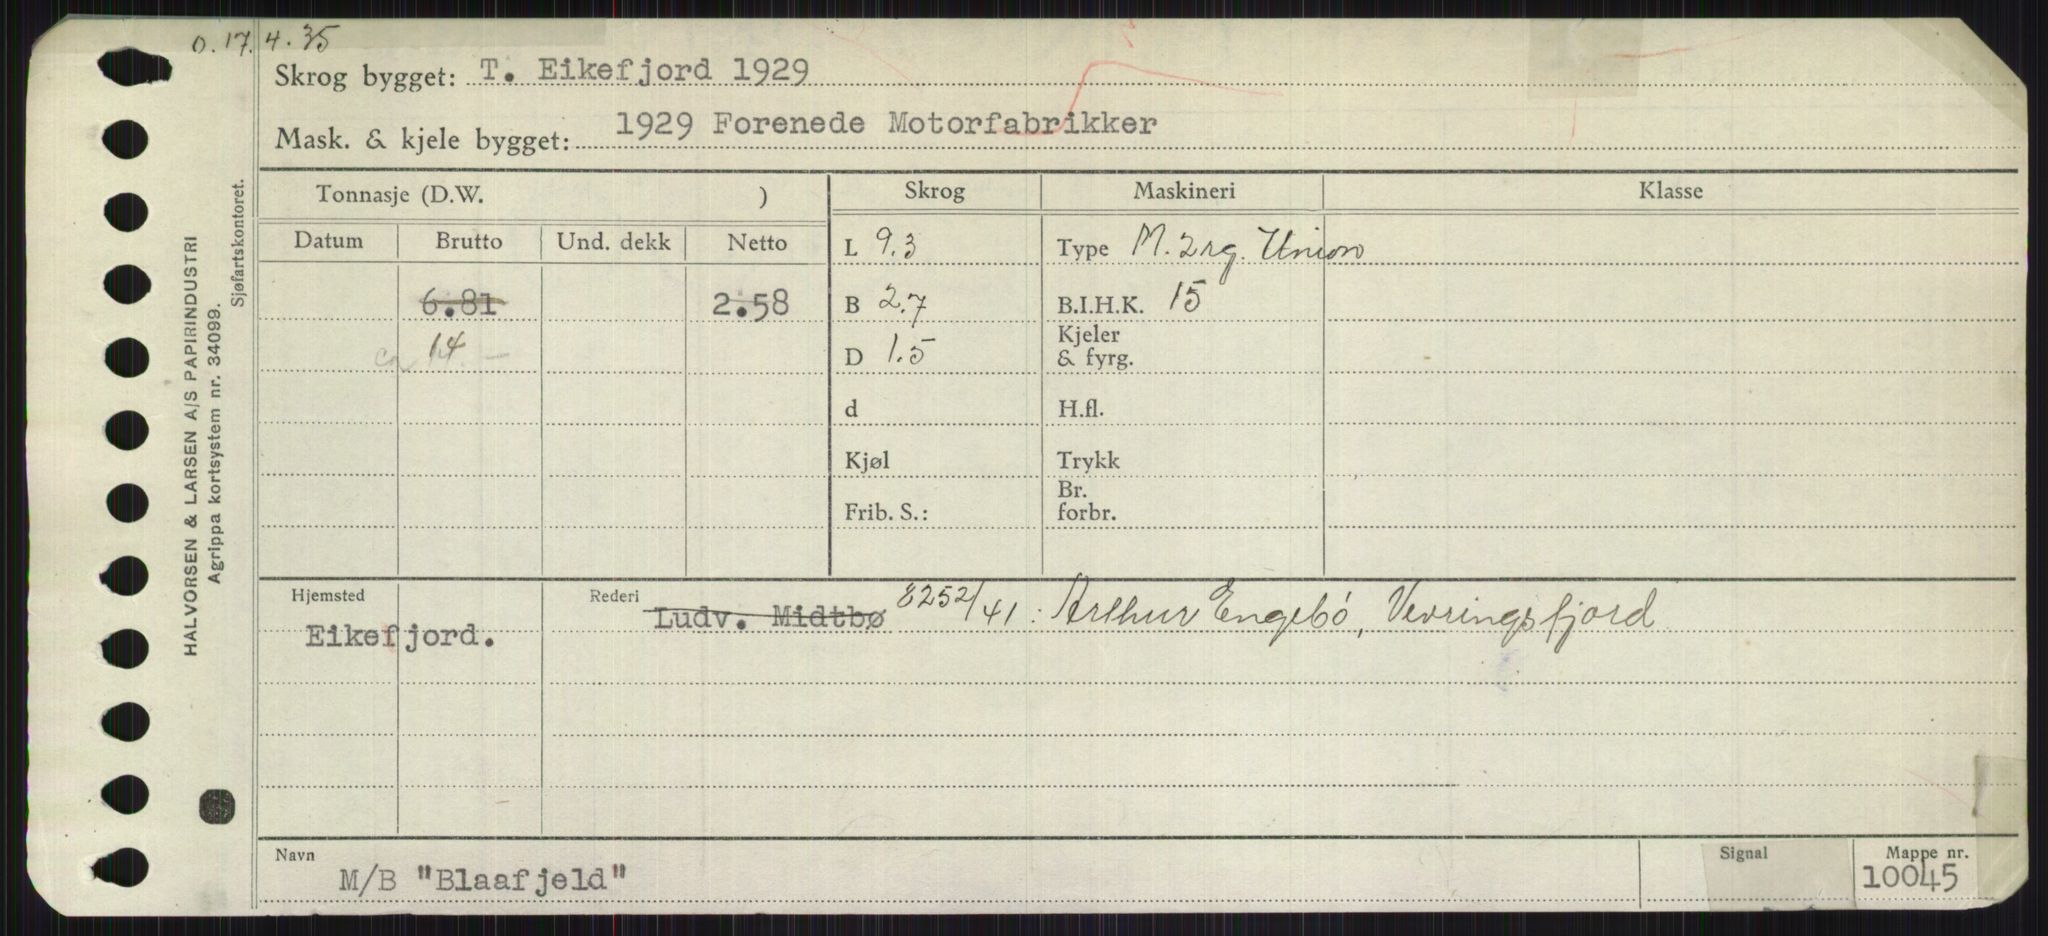 O. 17.4.35
Skrog bygget: T. Eikefjord 1929
Mask. & kjele bygget: 1929 Forenede Motorfabrikker
Tonnasje (D.W. )
Skrog
Maskineri
Klasse
Datum Brutto Und. dekk Netto
L 9.3
Type M. 2 rg. Union
6.81 2.58
B 2.7
B.I.H.K. 15
ca 14 –
D 1.5
Kjeler
& fyrg.
d
H.fl.
Kjøl
Trykk
Frib. S.:
Br.
forbr.
Hjemsted
Eikefjord.
Rederi
Ludv. Midtbø 8252/41: Arthur Engebö, Vevringsfjord
Navn
M/B "Blaafjeld"
Signal
Mappe nr.
10045
HALVORSEN & LARSEN A/S PAPIRINDUSTRI
Agrippa kortsystem nr. 34099.
Sjøfartskontoret.